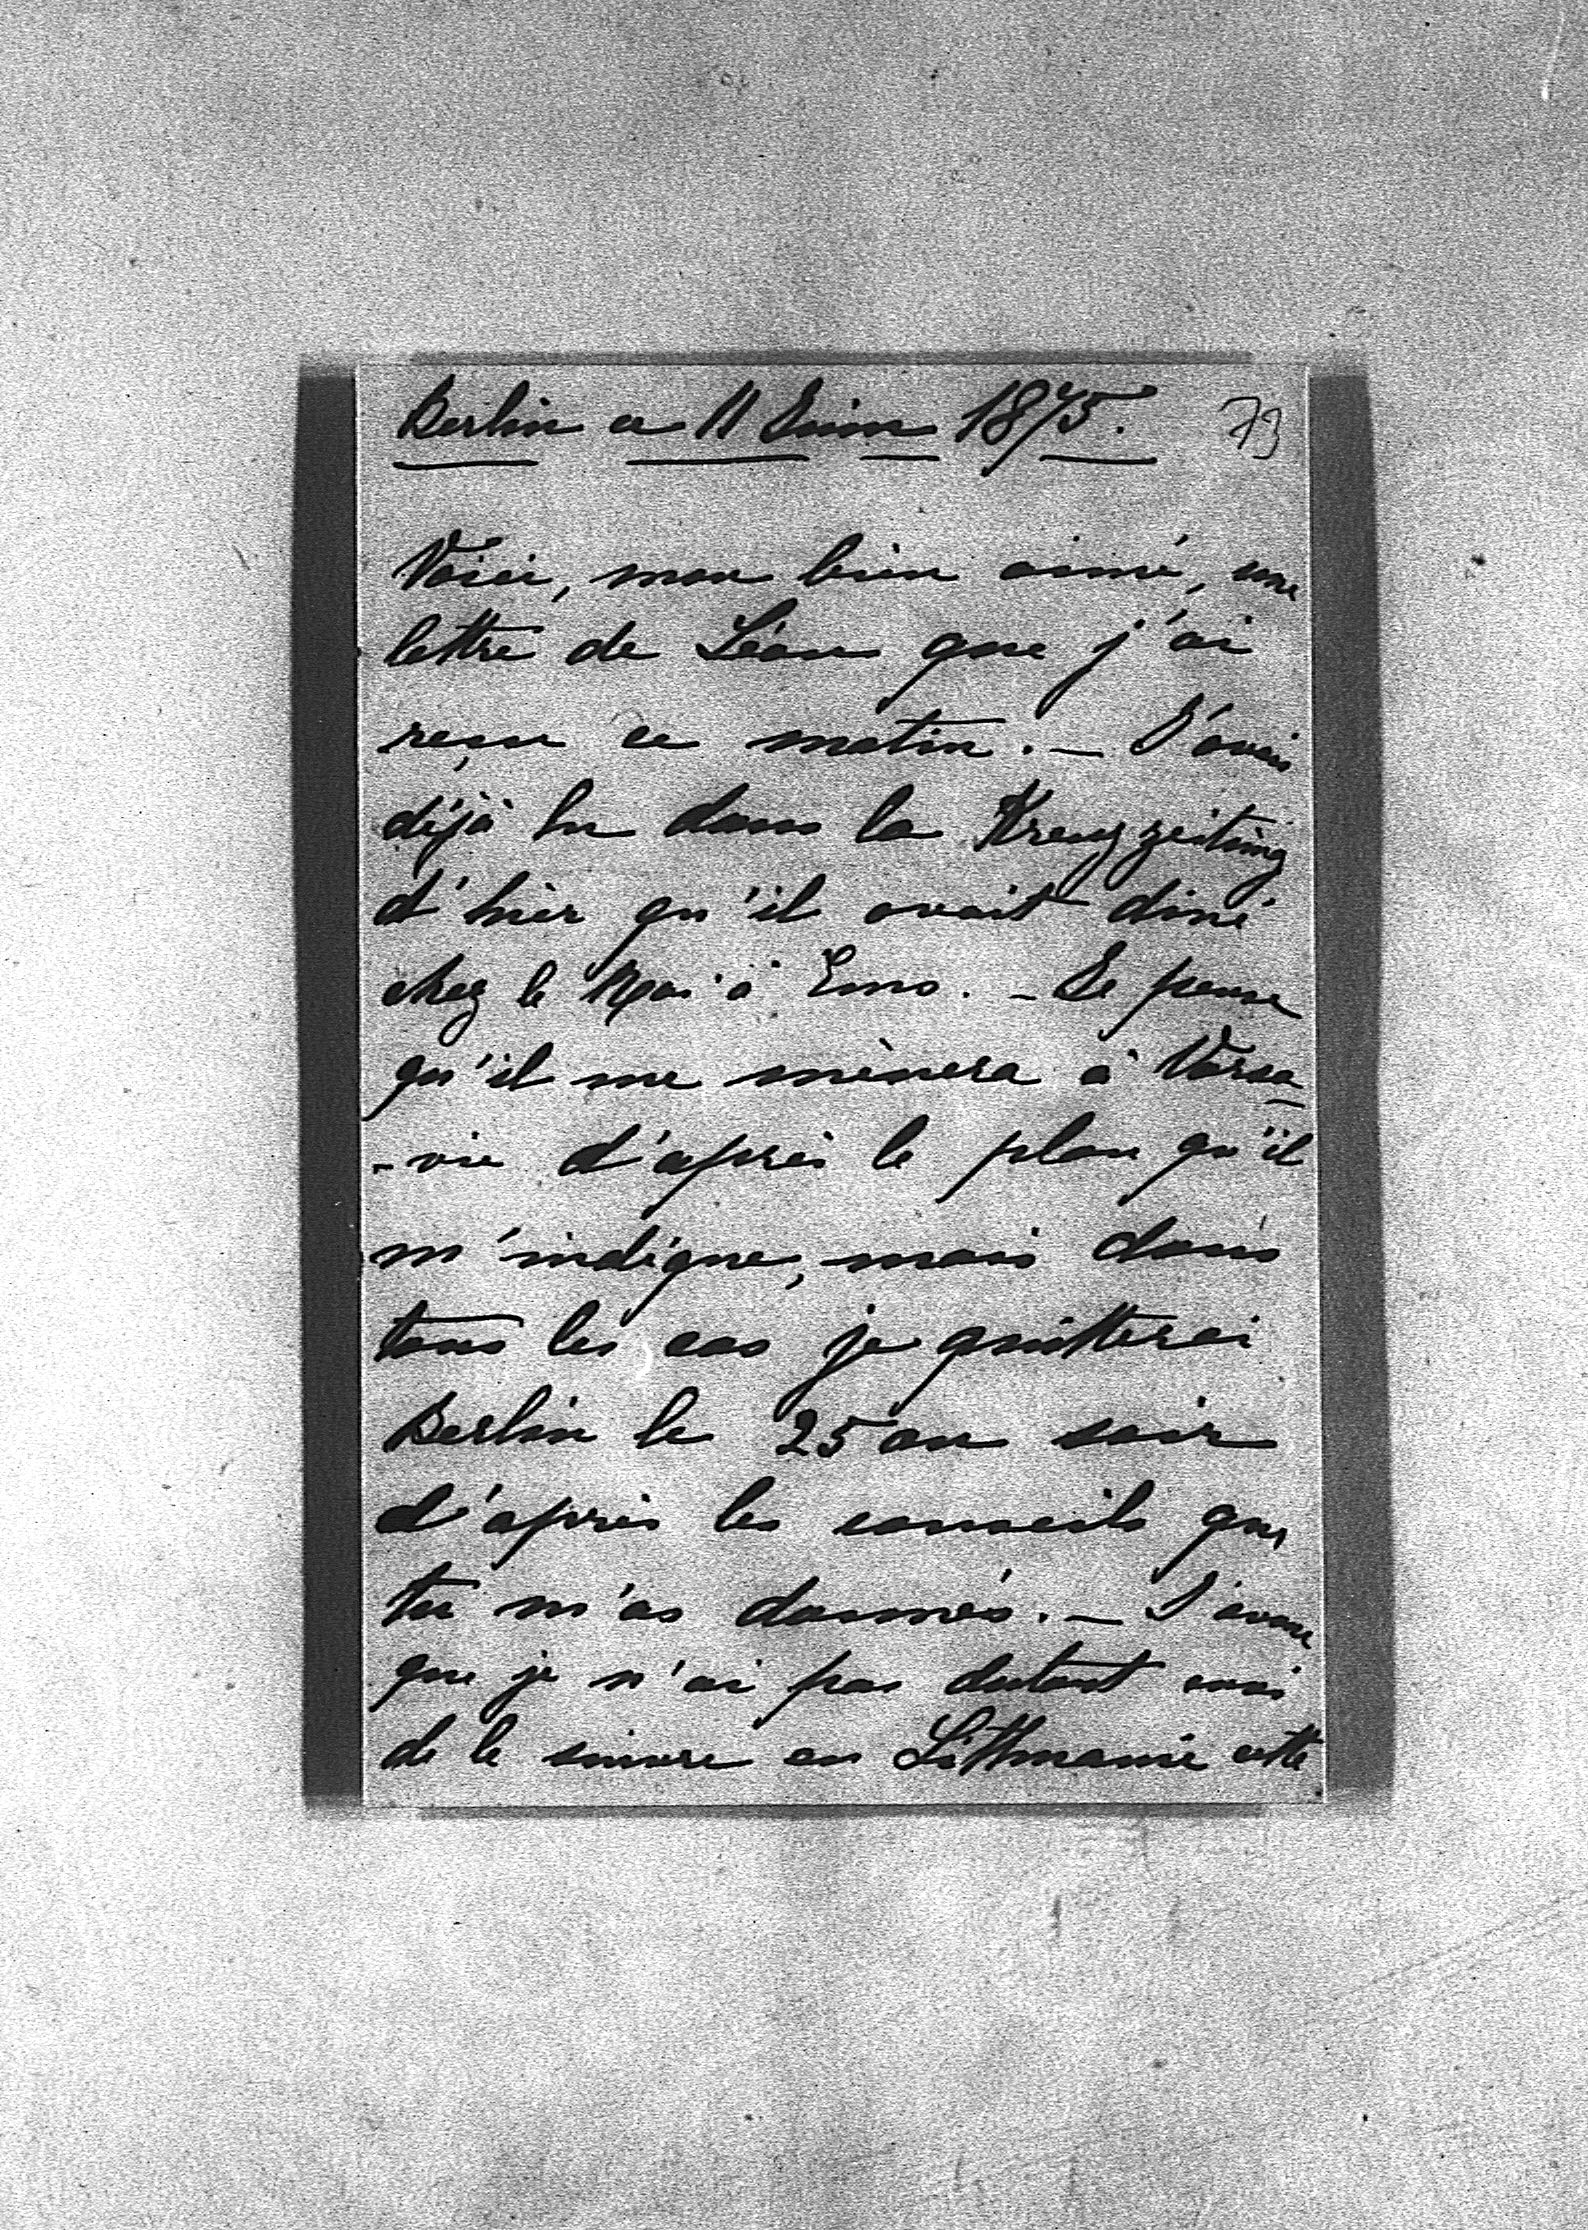 Berlin ce 11 Juin 1875. 73
Voici, mon bien aimé, une
lettre de Léon que j'ai
reçu ce matin. — J'avais
déjà lu dans la Kreuzzeitung
d'hier qu'il avait diné
chez le Roi à Ems. — Je pense
qu'il me mènera à Varso-
-vie d'après le plan qu'il
m'indique, mais dans
tous les cas je quitterai
Berlin le 25 au soir
d'après les conseils que
tu m'as donnés. — J'avoue
que je n'ai pas du tout
de le suivre en Litthuanie cette